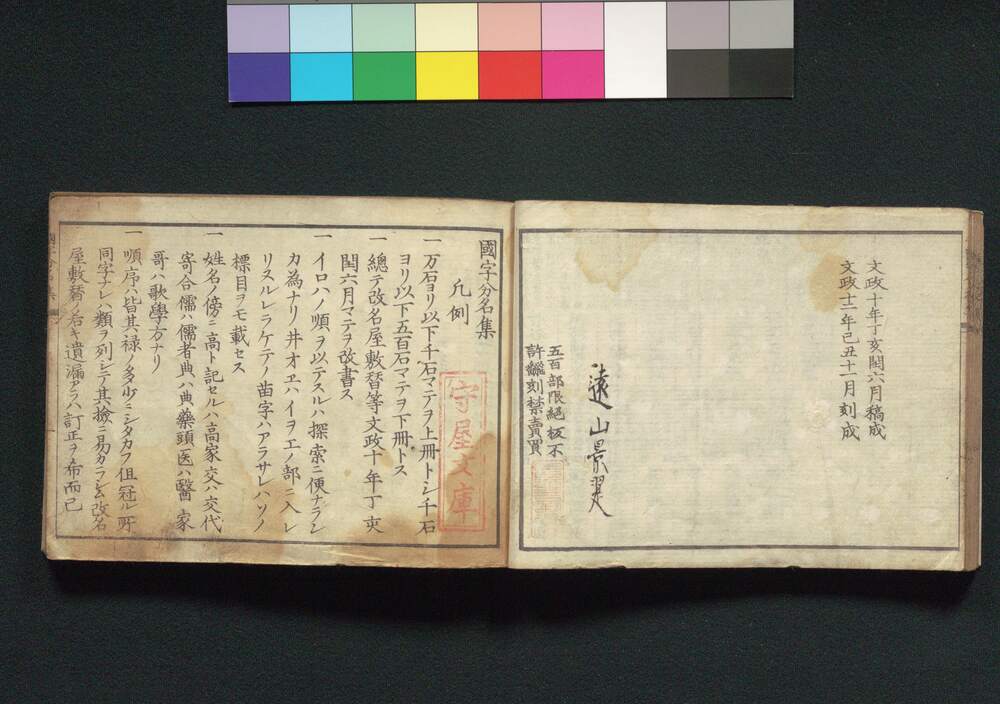 文政十年丁亥閏六月稿成
文政十二年己丑十一月刻成
遠山景
五百部限絶板不
許飜刻禁賣買
國字分名集
凡例
一万石ヨリ以下千石マテヲ上冊トシ千石
ヨリ以下五百石マテヲ下冊トス
一總テ改名屋敷替等文政十年丁亥
閏六月マテヲ改書ス
一イロハノ順ヲ以テスルハ探索ニ便ナラン
カ為ナリノ井オエハイヲエノ部ニ入レ
リスルレラケテノ苗字ハアラサレハソノ
標目ヲモ載セス
一姓名ノ傍ニ高ト記セルハ高家交ハ交代
寄合儒ハ儒者典ハ典藥頭医ハ醫家
哥ハ歌學方ナリ
一順序ハ皆其禄ノ多少ニシタカフ但冠ル所
同字ナレハ類ヲ列シテ其撿ニ易カラシム改名
屋敷替ノ若キ遺漏アラハ訂正ヲ希而已
守屋文庫